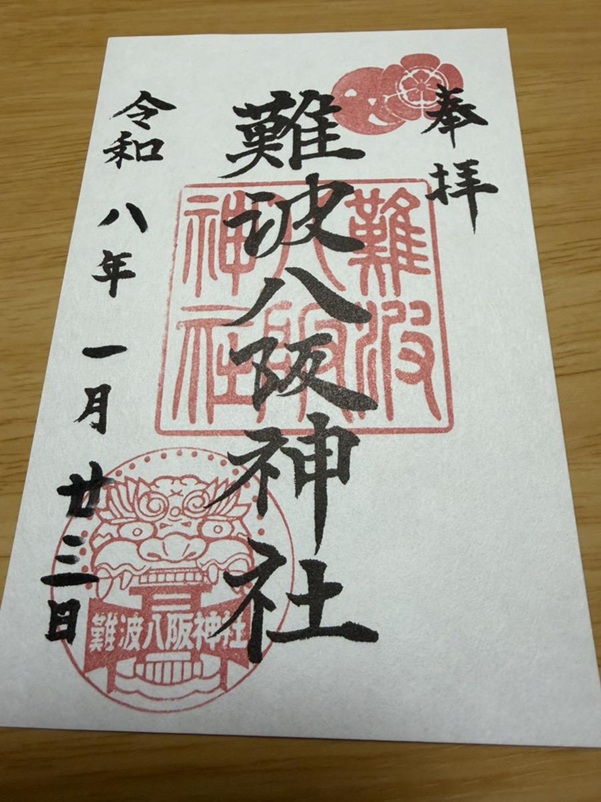 奉拝
難波八阪神社
令和八年一月廿三日
難波八阪神社
難波八阪神社